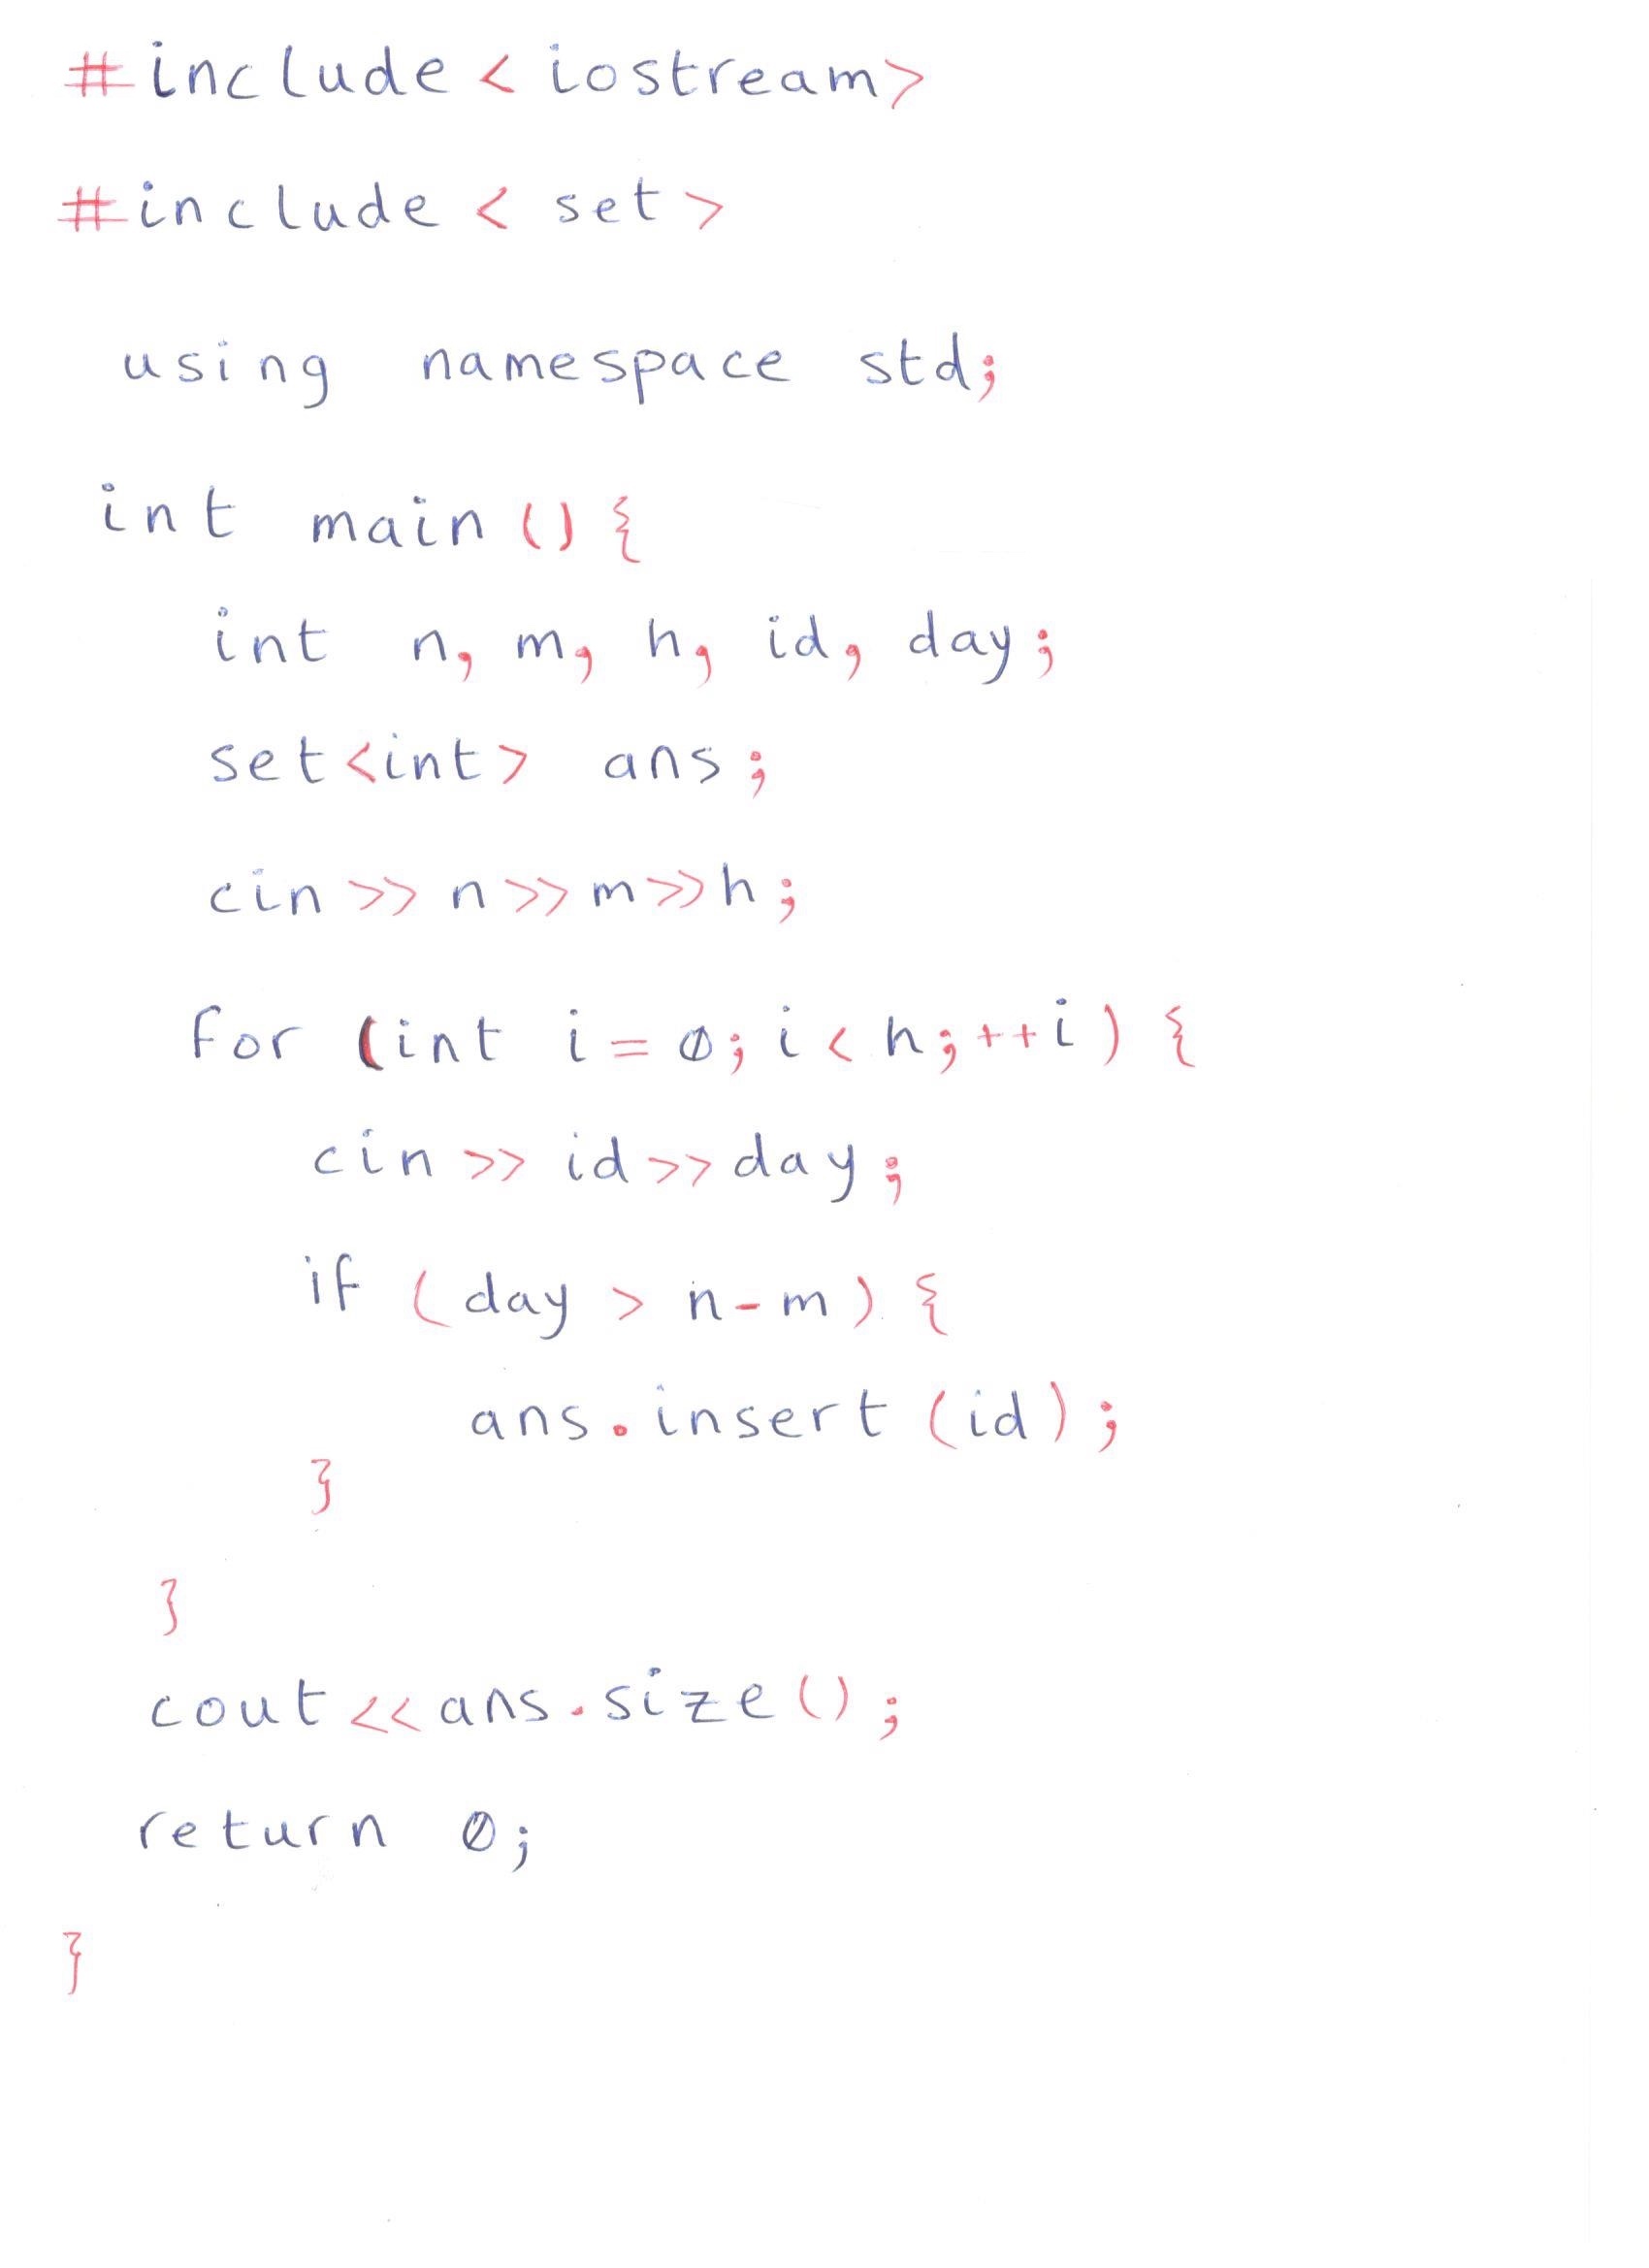 #include< iostream>
#include < set >
using namespace std;
int main () {
int n, m, h, id, day;
set<int> ans;
cin >> n >> m >> h;
for (int i = 0; i < h; ++i) {
cin >> id >> day;
if (day > n-m) {
ans.insert (id);
}
}
cout << ans.size();
return 0;
}